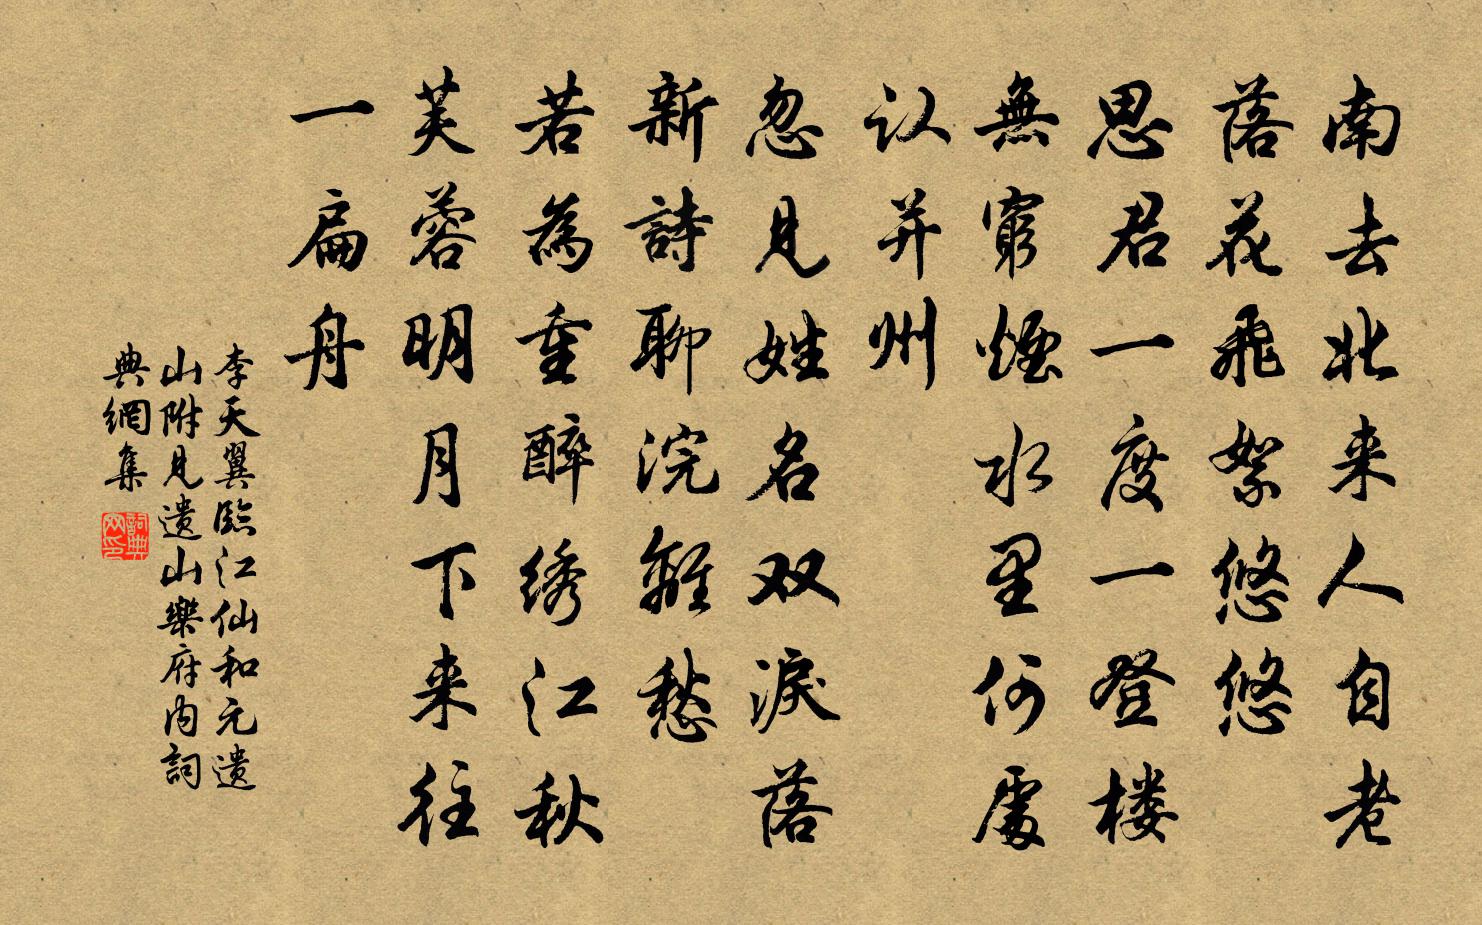 南去北来人自老
落花飛絮悠悠
思君一度一登楼
無窮煙水里何處
认并州
忽見姓名双淚落
新詩聊浣離愁
若為重醉绣江秋
芙蓉明月下来往
一扁舟
李天翼臨江仙和元遗
山附見遗山樂府内詞
典網集
詞典网印